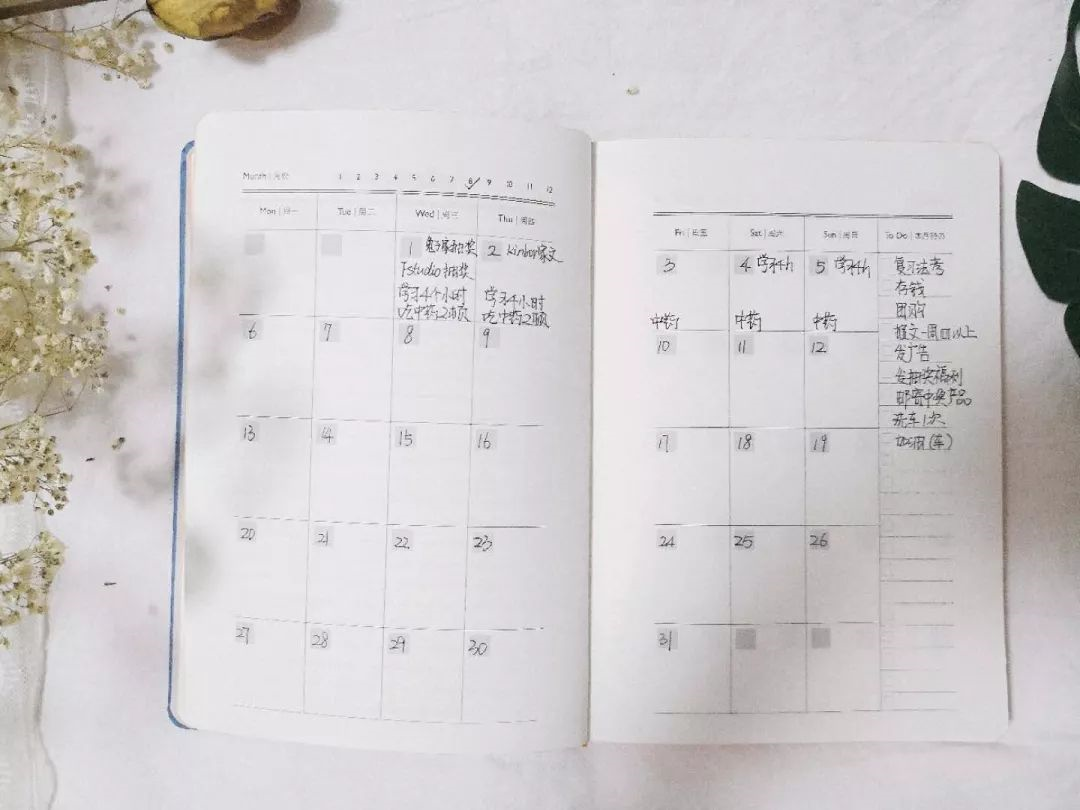 Month | 月份 1 2 3 4 5 6 7 8 9 10 11 12
Mon | 周一 Tue | 周二 Wed | 周三 Thu | 周四
1 兔子家抽奖
Tstudio 抽奖
学习4个小时
吃中药2顿
2 kinbor家文
学习4小时
吃中药2顿
6 7 8 9
13 14 15 16
20 21 22 23
27 28 29 30
Fri | 周五 Sat | 周六 Sun | 周日 To Do | 本月待办
3
中药
4 学习4h
中药
5 学习4h
中药
10 11 12
17 18 19
24 25 26
31
复习法考
存钱
团购
推文一周四以上
发广告
发抽奖福利
邮寄中奖产品
洗车1次
加油(车)